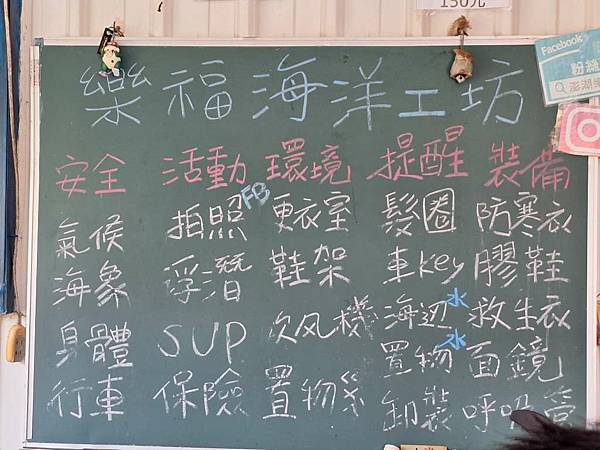 150元
Facebook
粉絲
樂福海洋工坊
安全 活動 環境 提醒 裝備
氣候 拍照FB 更衣室 髮圈 防寒衣
海象 浮潛 鞋架 車key 膠鞋
身體 SUP 吹风機 海边水 救生衣
行車 保險 置物 置物水 面鏡
卸裝 呼吸管